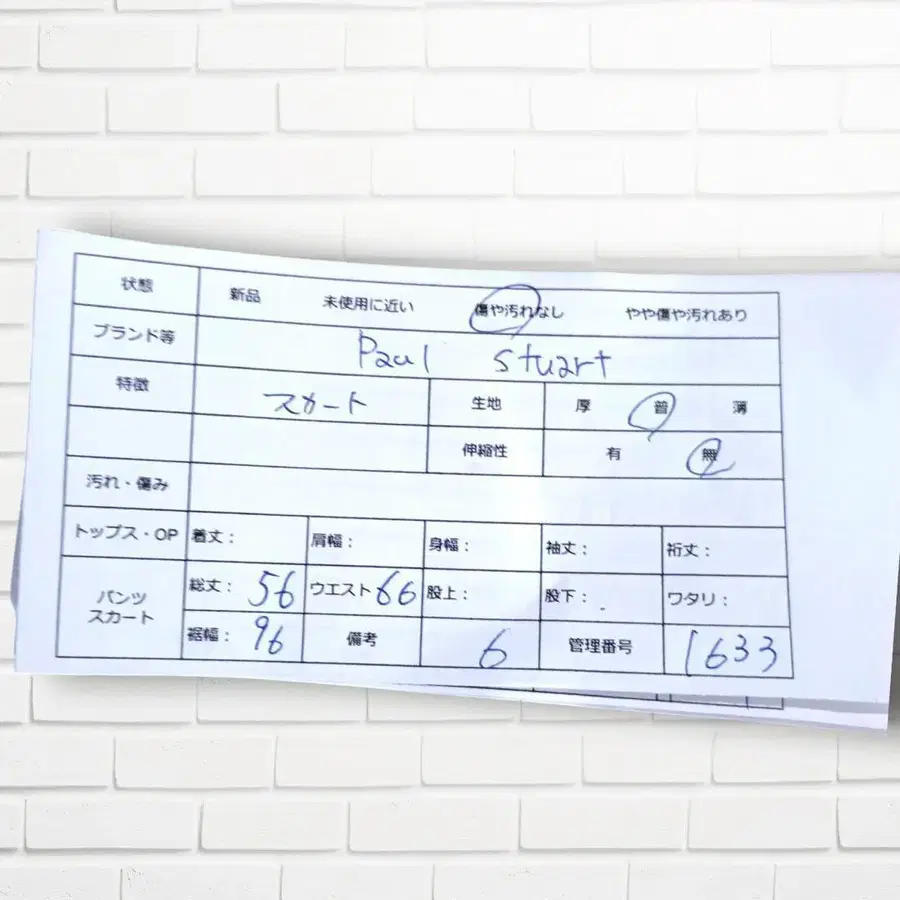 状態 新品 未使用に近い 傷や汚れなし やや傷や汚れあり
ブランド等 Paul Stuart
特徴 スカート 生地 厚 普 薄
伸縮性 有 無
汚れ・傷み
トップス・OP 着丈: 肩幅: 身幅: 袖丈: 裄丈:
パンツ スカート 総丈: 56 ウエスト 66 股上: 股下: ワタリ:
裾幅: 96 備考 6 管理番号 1633